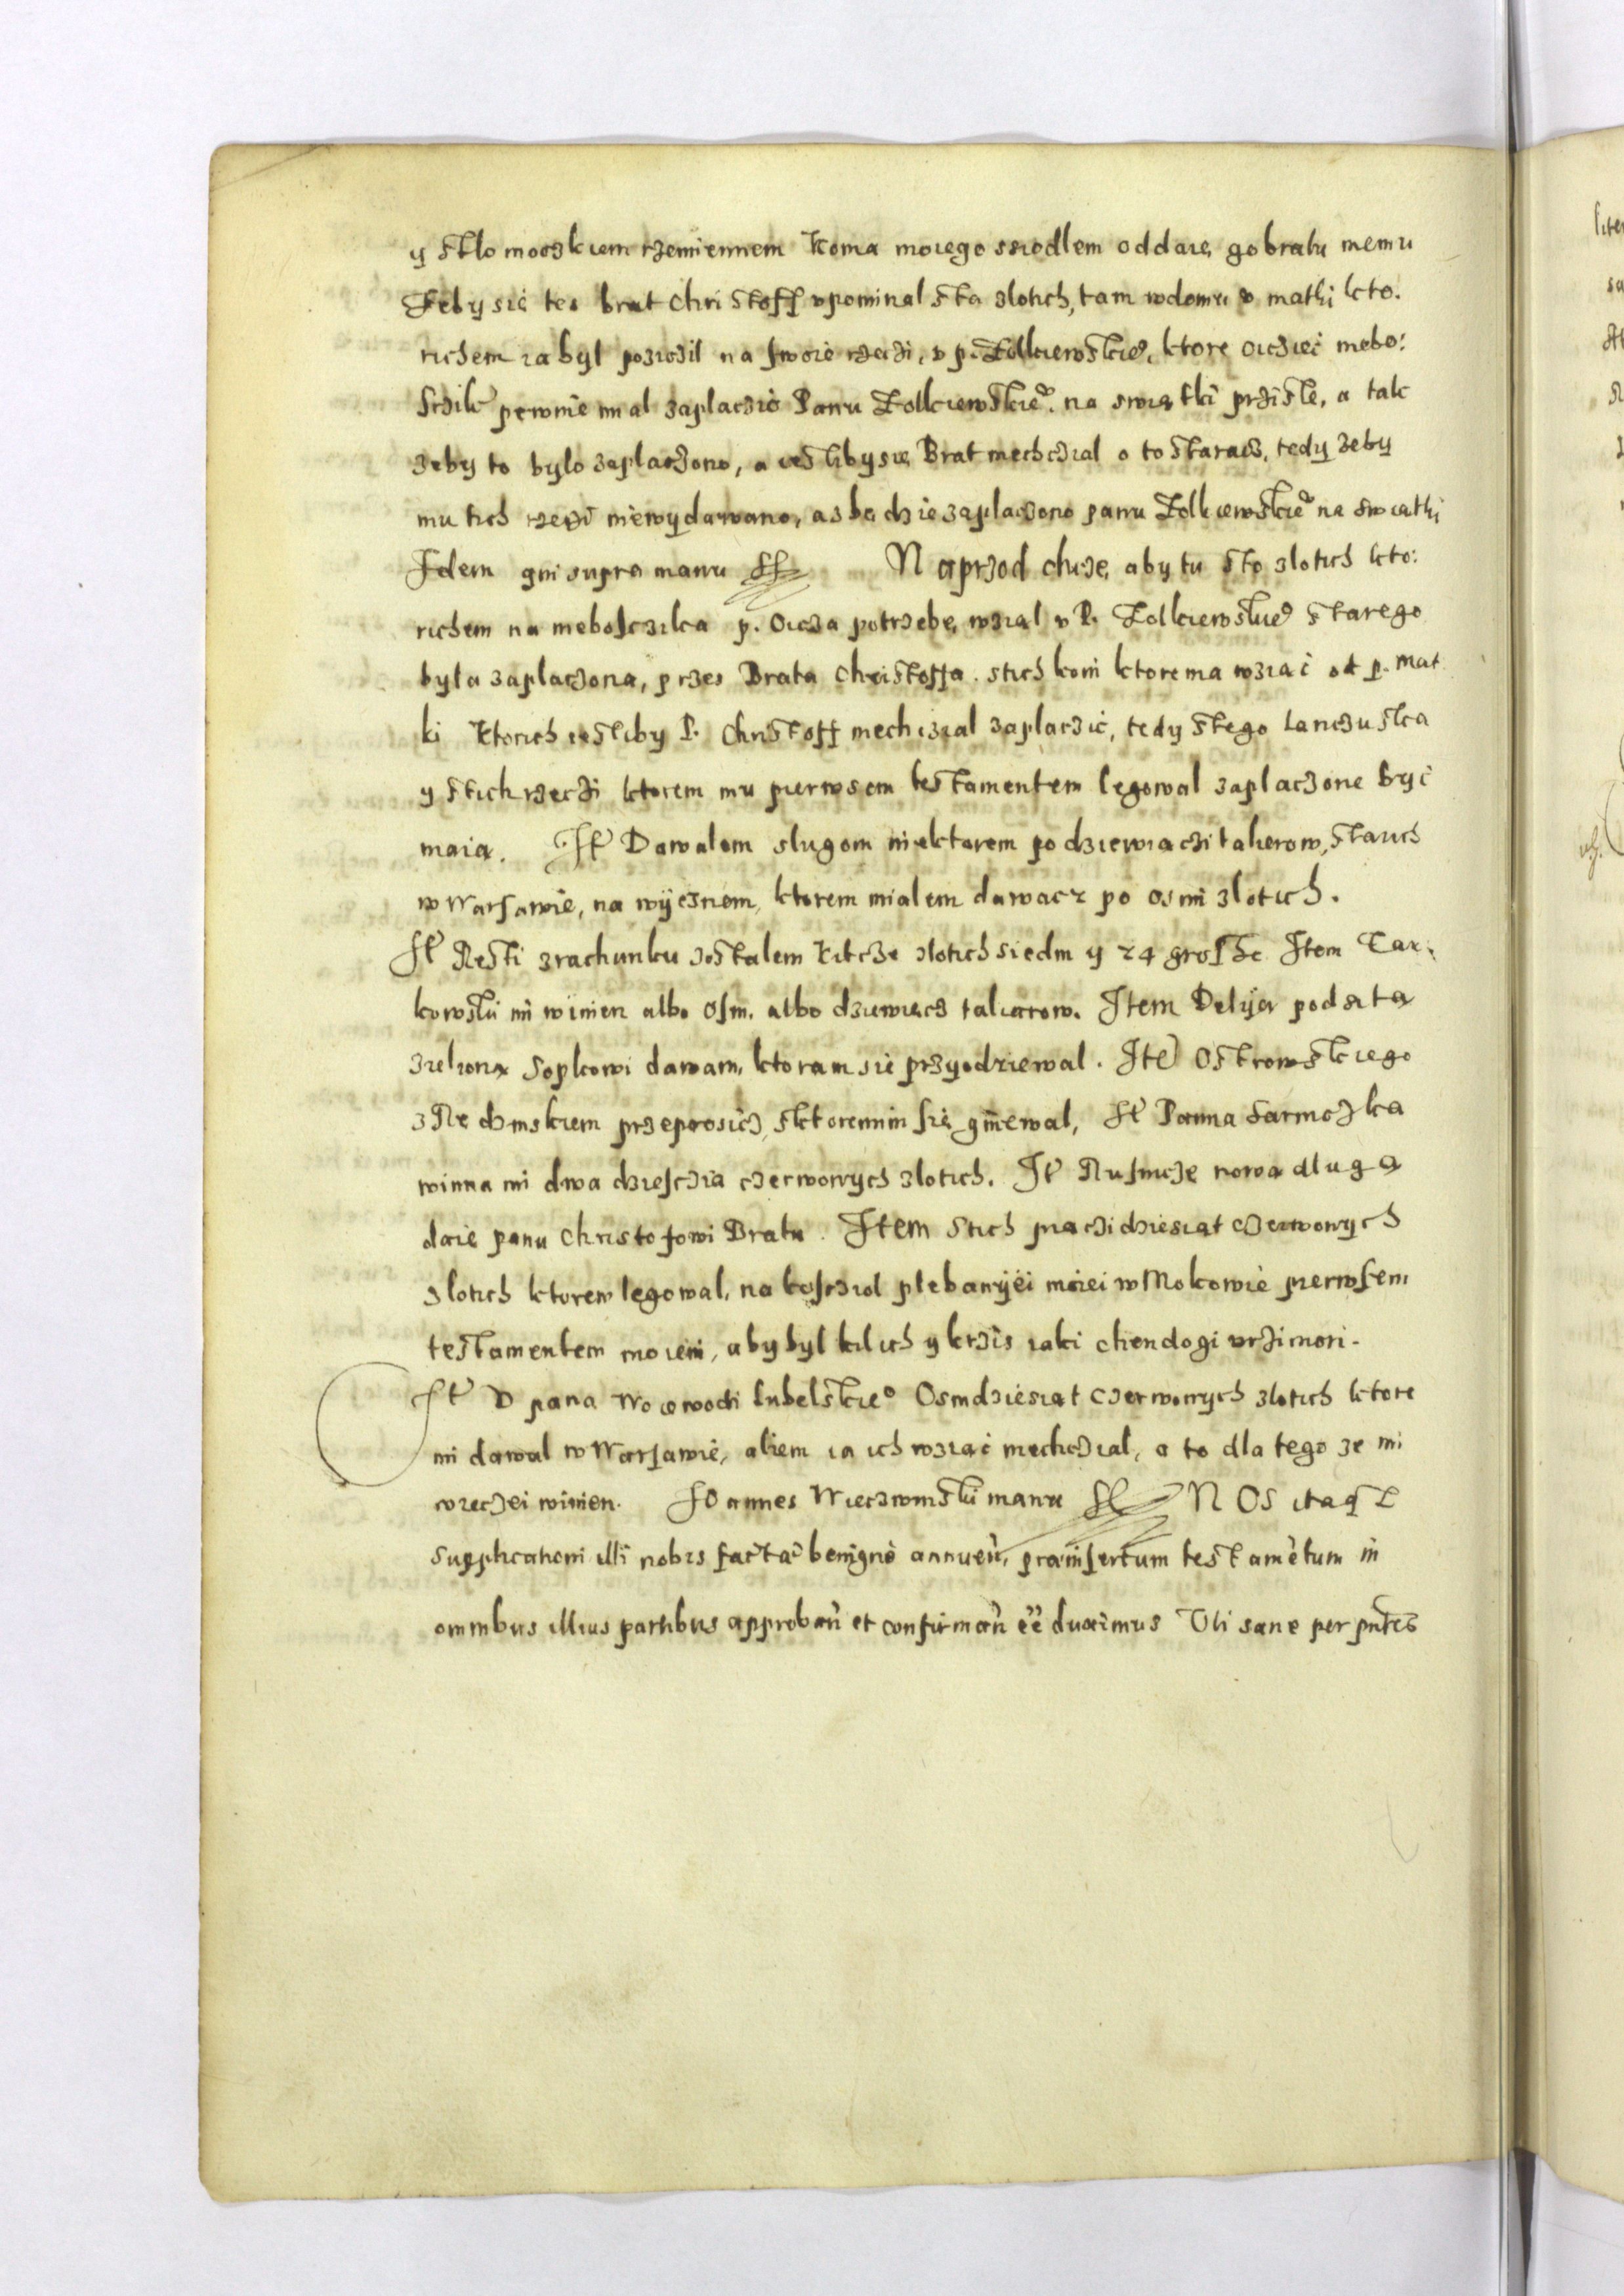 y stlo moczkiem rzemiennem Konia moiego ssiodlem oddaię go bratu memu
Zeby sie tes brat Christoff vpominal sta zlotich, tam wdomu v mathi kto:
richem ia byl poziczil na swoie rzeczi, v p. Zolkiewskie°, ktore oicziec niebo:
sczik pewnie mial zaplaczić Panu Zolkiewskie°. na swiątki prziste, a tak
zeby to bylo zaplaczono, a iestliby się Brat niechczial o to staracz, tedy zeby
mu tich rzeczi niewydawano, as bedzie zaplaczono panu Zolkiewskie° na swiathi
Idem qui supra manu Naprzod chcze, aby tu sto zlotich kto:
richem na niebosczika p. Oicza potrzebe, wzial v P. Zolkiewskie° starego
byla zaplaczona, przes Brata Christoffa. stich koni ktore ma wziąć od p. mat
ki ktorich iestliby P. Christoff niechczial zaplaczić, tedy stego lanczuska
y stich rzeczi ktorem mu pierwsem testamentem legowal zaplaczone być
maia. It Dawalem slugom niektorem po dziewiaczi talierow, starich
w Warsawie, na wyieznem, ktorem mialem dawacz po osmi zlotich.
It Resti zrachunku zostalem Kitcze zlotich siedm y 24 grosse Item Tar:
kowski mi winien albo osm. albo dziewięcz taliarow. Item Delyia podsita
zieliona Sopkowi dawam, ktoram sie przyodziewal. Ite Ostrowskiego
z Redzinskiem przeprosicz, sktoremim sie gniewal, It Panna Sarmozka
winna mi dwa dziesczia czerwonych zlotich. It Rusnicze nowa dluga
daie panu Christofowi Bratu. Item stich piaczidziesiat czerwonych
zlotich ktorem legowal, na koscziol plebanyiei moiei w Mokowie pierwsem
testamentem moiem, aby byl kilich y krziz iaki chendogi vrzinioni.
It V pana Woiewodi Lubelskie° Osmdziesiat czerwonych zlotich ktore
mi dawal w Warsawie, aliem ia ich wziać niechczial, a to dla tego ze mi
wieczei winien. Joannes Wieczwinski manu NOS itaq
supplicationi illi nobis factae benignè annuen, praeinsertum testamētum in
omnibus illius partibus approban et confirman eē duximus Vti sane per pntes